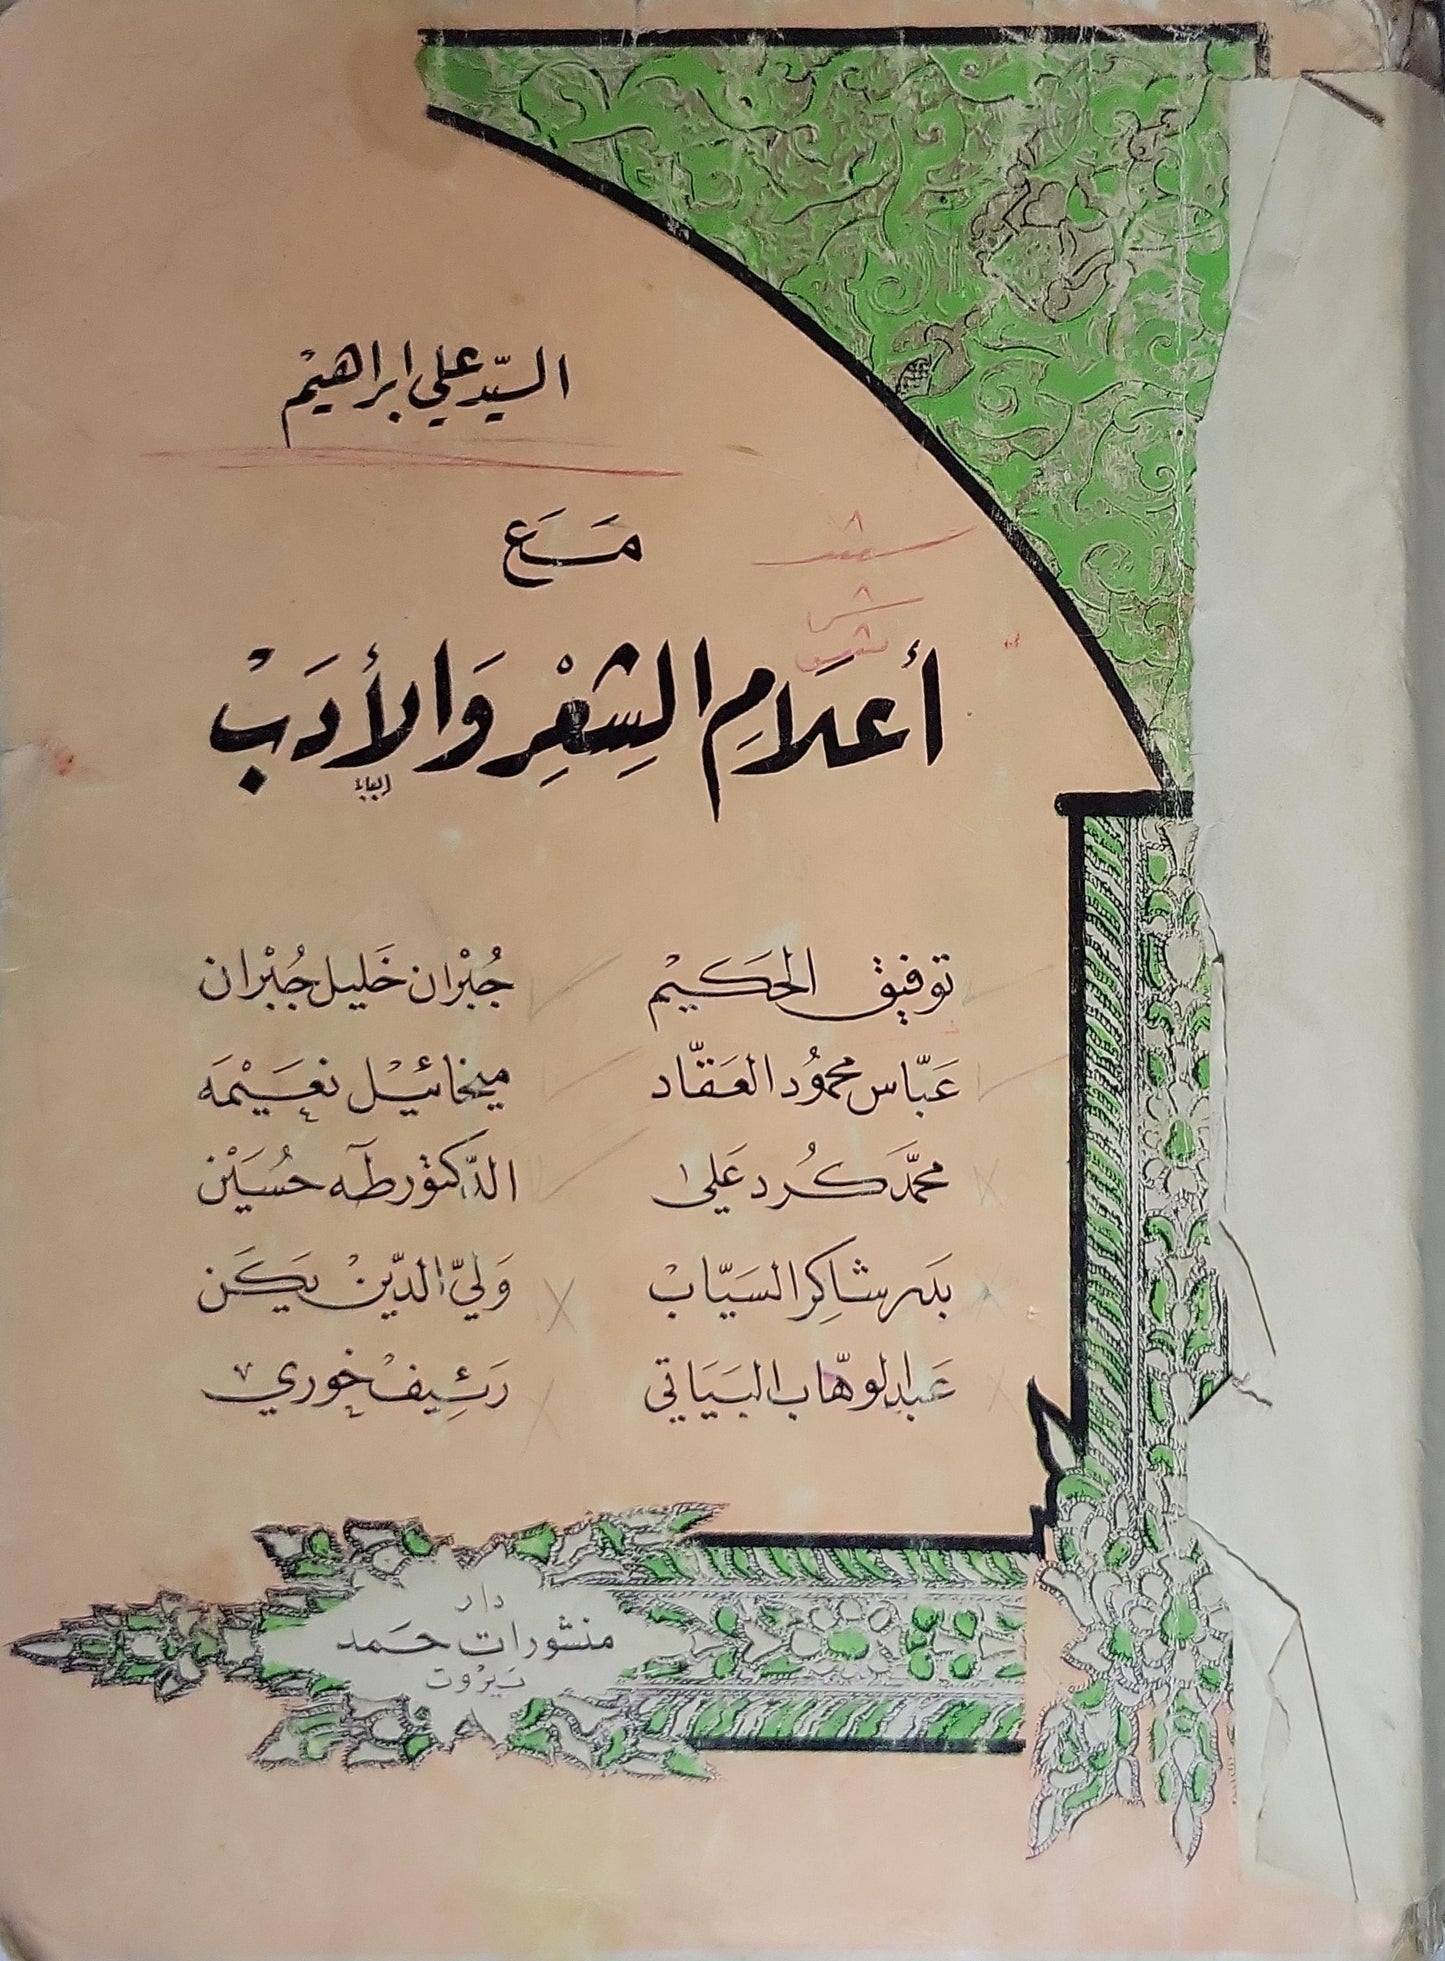 السيّد علي ابراهيمْ
مَـَع
أعلَامِ الشِعْرِ وَالأدَبْ
توفيق الحَكيمْ
جُبْران خَليل جُبْران
عَبّاس محمُود العَقّاد
ميخائيل نعَيْمَه
محمَّد كُرد عَلي
الدّكتور طه حُسَيْن
بدر شاكِر السَيّابْ
وَليّ الدّينْ يَكَن
عَبد الوهّاب البَيَاتي
رَئِيفْ خوري
دار
منشورات حَمد
بَيْروت